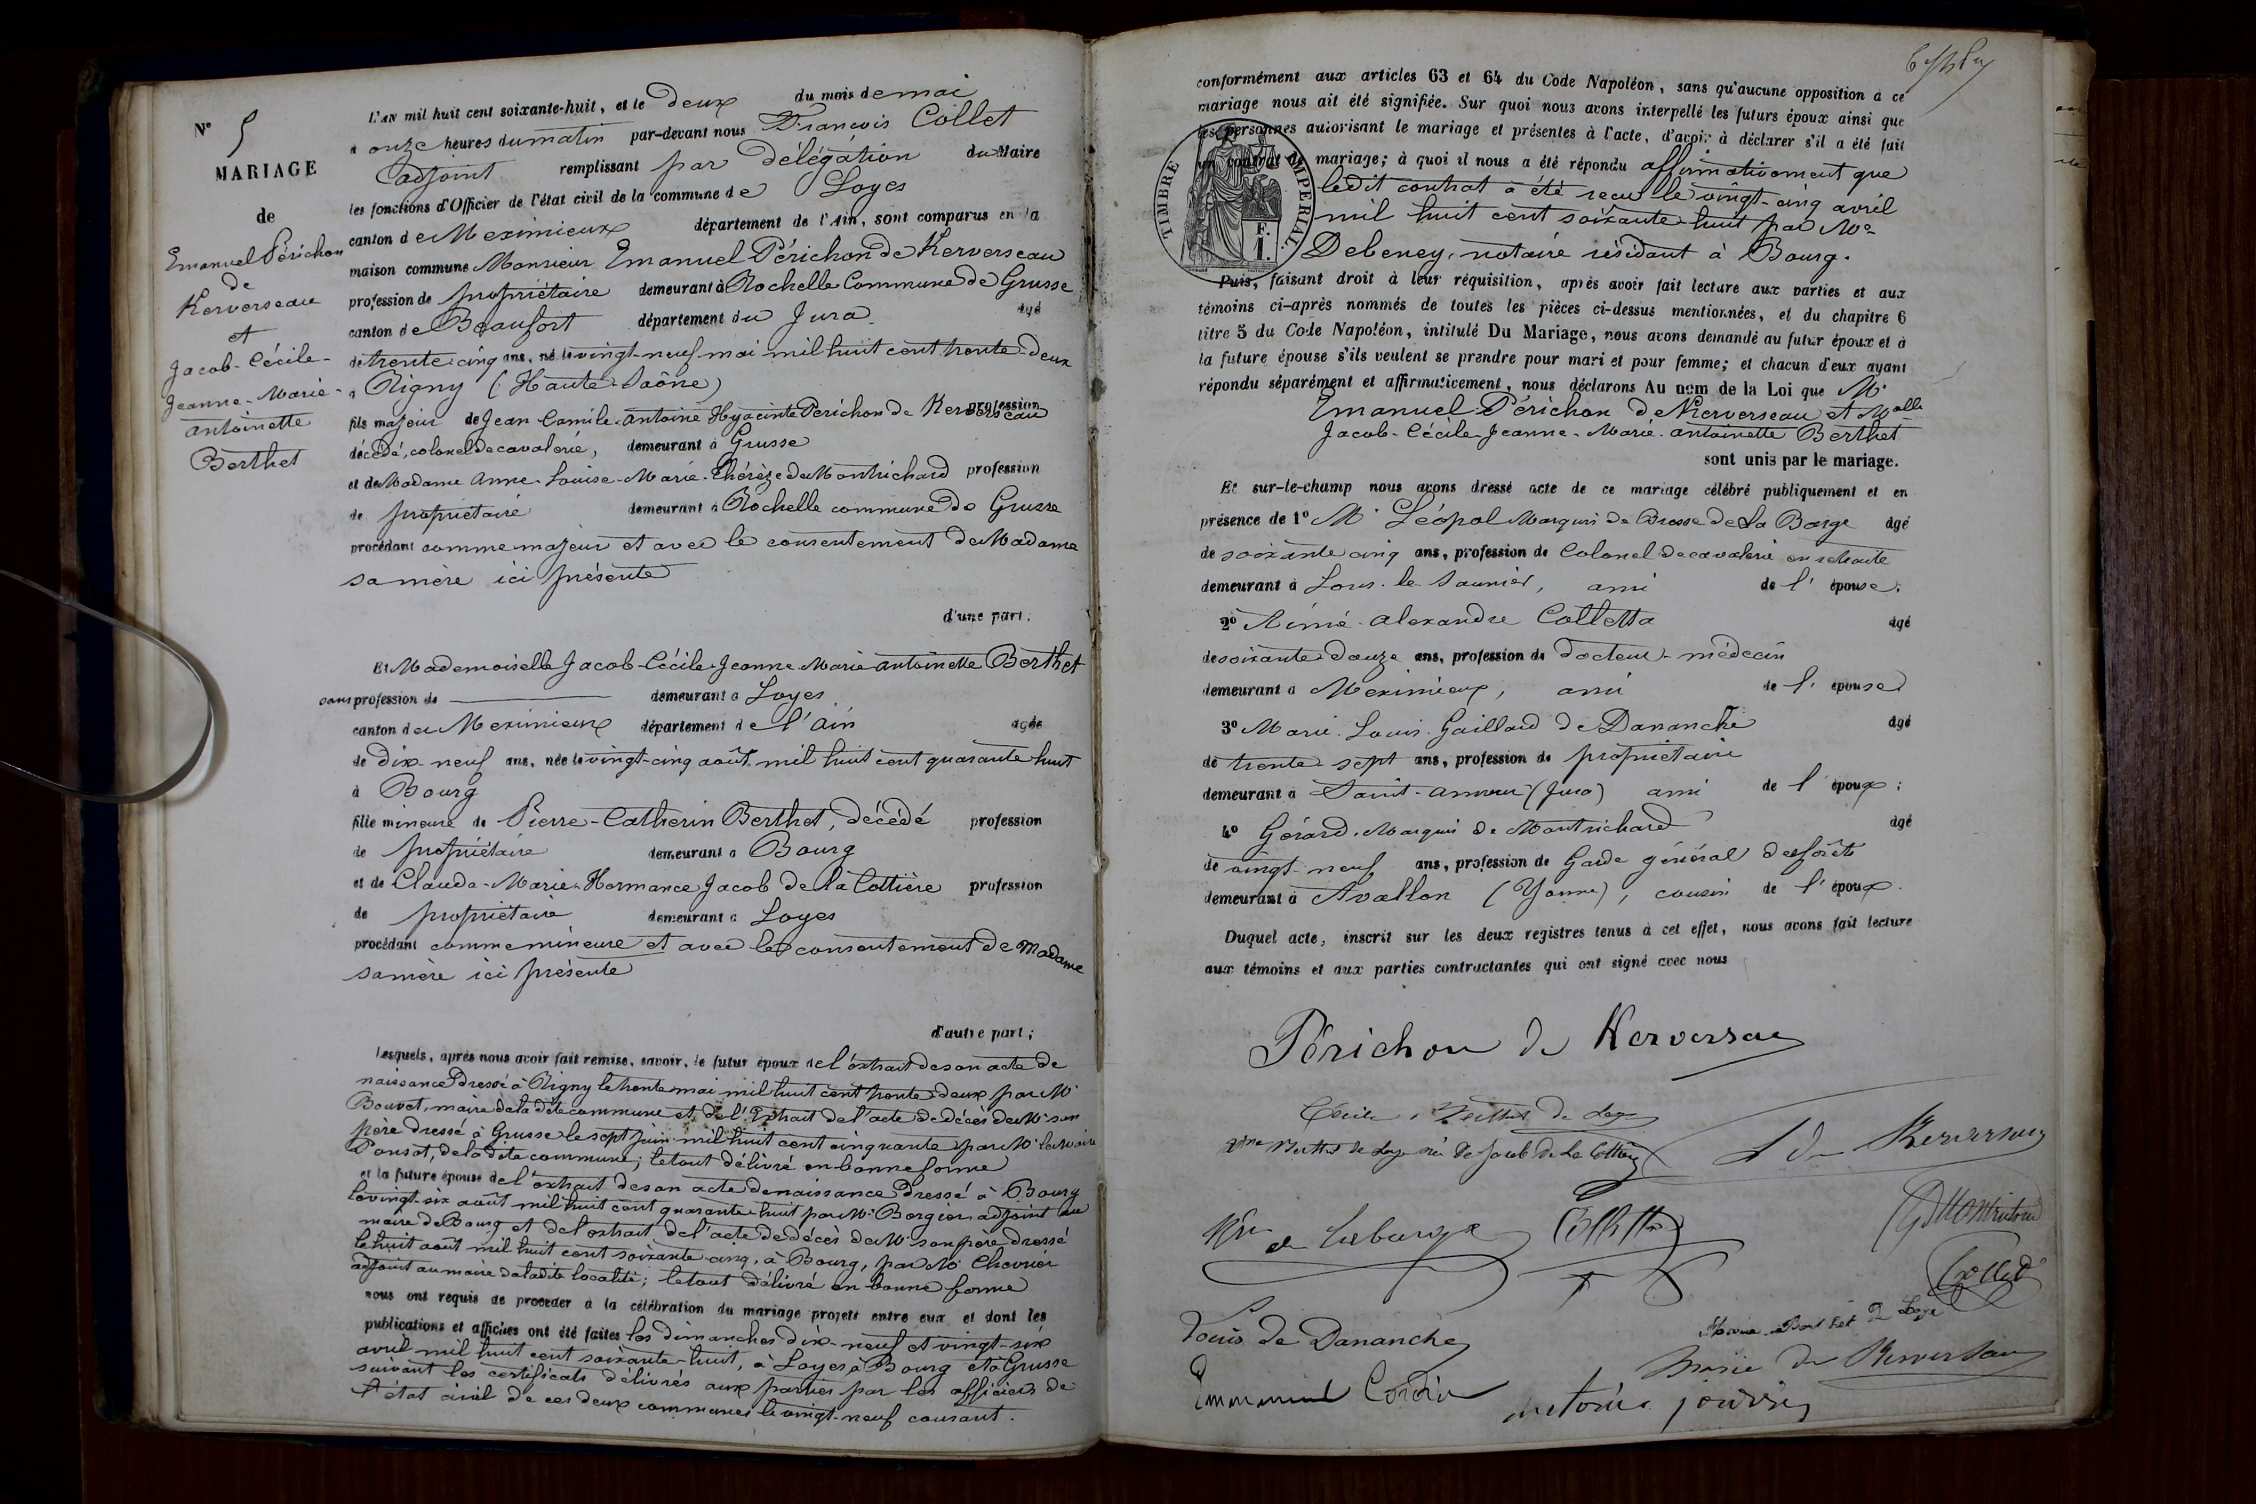 N° 5
MARIAGE
de
Emanuel Périchon
de
Kerverseau
et
Jacob-Cécile-
Jeanne-Marie-
antoinette
Berthet
L'an mil huit cent soixante-huit, et le deux du mois de mai
à onze heures du matin par-devant nous François Collet
adjoint remplissant par Délégation du Maire
les fonctions d'Officier de l'état civil de la commune de Loyes
canton de Meximieux département de l'Ain, sont comparus en la
maison commune Monsieur Emanuel Périchon de Kerverseau
profession de propriétaire demeurant à Rochelle Commune de Grusse
canton de Beaufort département du Jura âgé
de trente-cinq ans, né le vingt-neuf mai mil huit cent trente-deux
à Rigny (Haute-Saône)
fils majeur de Jean Camile antoine Hyacinte Perichon de Kerverseau profession
décédé, colonel de cavalerie, demeurant à Grusse
et de Madame Anne-Louise-Marie-Thérèze de Montrichard profession
de propriétaire demeurant à Rochelle commune de Grusse
procédant comme majeur et avec le consentement de Madame
sa mère ici présente
d'une part;
Et Mademoiselle Jacob-Cécile-Jeanne-Marie antoinette Berthet
sans profession de demeurant à Loyes
canton de Meximieux département de l'ain âgée
de dix-neuf ans, née le vingt-cinq août mil huit cent quarante huit
à Bourg
fille mineure de Pierre-Catherin Berthet, décédé profession
de propriétaire demeurant à Bourg
et de Claude-Marie-Hermance Jacob de la Cottière profession
de propriétaire demeurant à Loyes
procédant comme mineure et avec le consentement de Madame
sa mère ici présente
d'autre part;
Lesquels, après nous avoir fait remise, savoir, le futur époux de l'extrait de son acte de
naissance Dressé à Rigny le trente mai mil huit cent trente deux par Mr
Bouvet, maire de la dite commune et de l'Extrait de l'acte de décès de Mr son
père dressé à Grusse le sept juin mil huit cent cinquante par Mr le Maire
Ponsot, de la dite commune; le tout délivré en bonne forme
et la future épouse de l'extrait de son acte de naissance Dressé à Bourg
le vingt-six août mil huit cent quarante-huit par Mr Borgier adjoint au
maire de Bourg et de l'extrait de l'acte de décès de Mr son père dressé
le huit août mil huit cent soixante-cinq, à Bourg, par Mr Chevrier
adjoint au maire de la dite localité; le tout délivré en bonne forme
nous ont requis de procéder à la célébration du mariage projeté entre eux, et dont les
publications et affiches ont été faites les dimanches dix-neuf et vingt-six
avril mil huit cent soixante-huit, à Loyes à Bourg et à Grusse
suivant les certificats délivrés aux parties par les officiers de
l'état civil de ces deux communes le vingt-neuf courant.
conformément aux articles 63 et 64 du Code Napoléon, sans qu'aucune opposition à ce
mariage nous ait été signifiée. Sur quoi nous avons interpellé les futurs époux ainsi que
les personnes autorisant le mariage et présentes à l'acte, d'avoir à déclarer s'il a été fait
un contrat de mariage; à quoi il nous a été répondu affirmativement que
ledit contrat a été reçu le vingt-cinq avril
mil huit cent soixante-huit par Me
Debeney, notaire résidant à Bourg.
TIMBRE IMPERIAL
F.
1.
Puis, faisant droit à leur réquisition, après avoir fait lecture aux parties et aux
témoins ci-après nommés de toutes les pièces ci-dessus mentionnées, et du chapitre 6
titre 5 du Code Napoléon, intitulé Du Mariage, nous avons demandé au futur époux et à
la future épouse s'ils veulent se prendre pour mari et pour femme; et chacun d'eux ayant
répondu séparément et affirmativement, nous déclarons Au nom de la Loi que Mr
Emanuel Périchon de Kerverseau et Melle
Jacob-Cécile-Jeanne-Marie-antoinette Berthet
sont unis par le mariage.
Et sur-le-champ nous avons dressé acte de ce mariage célébré publiquement et en
présence de 1° Mr Léopol Marquis de Brosse de La Barge âgé
de soixante cinq ans, profession de Colonel de cavalerie en retraite
demeurant à Lons-le-Saunier, ami de l'épouse;
2° Aimé-alexandre Colletta âgé
de soixante-douze ans, profession de docteur-médecin
demeurant à Meximieux, ami de l'épouse
3° Marie-Louis-Gaillard de Dananche âgé
de trente-sept ans, profession de propriétaire
demeurant à Saint-amour (Jura) ami de l'époux;
4° Gérard, Marquis de Montrichard âgé
de vingt-neuf ans, profession de Garde général des forêts
demeurant à Avallon (Yonne), cousin de l'époux.
Duquel acte, inscrit sur les deux registres tenus à cet effet, nous avons fait lecture
aux témoins et aux parties contractantes qui ont signé avec nous
Périchon de Kerverseau
Cécile Berthet de Loye
Berthet de Loye née de Jacob de La Cottière
de Kerverseau
Montrichard
Colletta
Collet
Louis de Dananche
Marie Berthet de Loye
Marie de Kerverseau